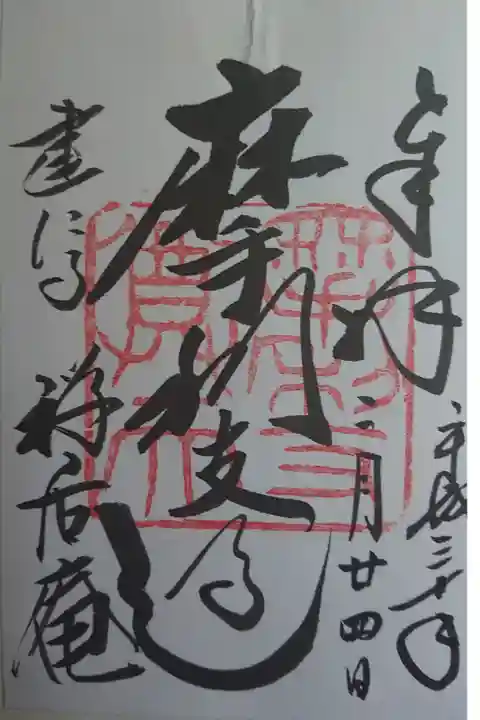 奉拝
平成三十年
二月廿四日
摩利支
建仁寺 禅居庵